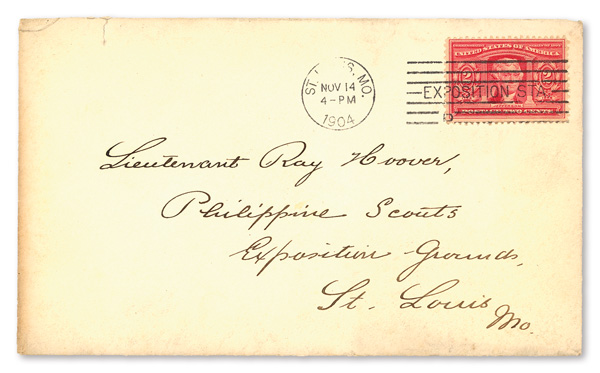 ST. LOUIS, MO.
NOV 14
4-PM
1904
UNITED STATES OF AMERICA
2 2
EXPOSITION STA.
Lieutenant Ray Hoover,
Philippine Scouts
Exposition Grounds,
St. Louis
Mo.